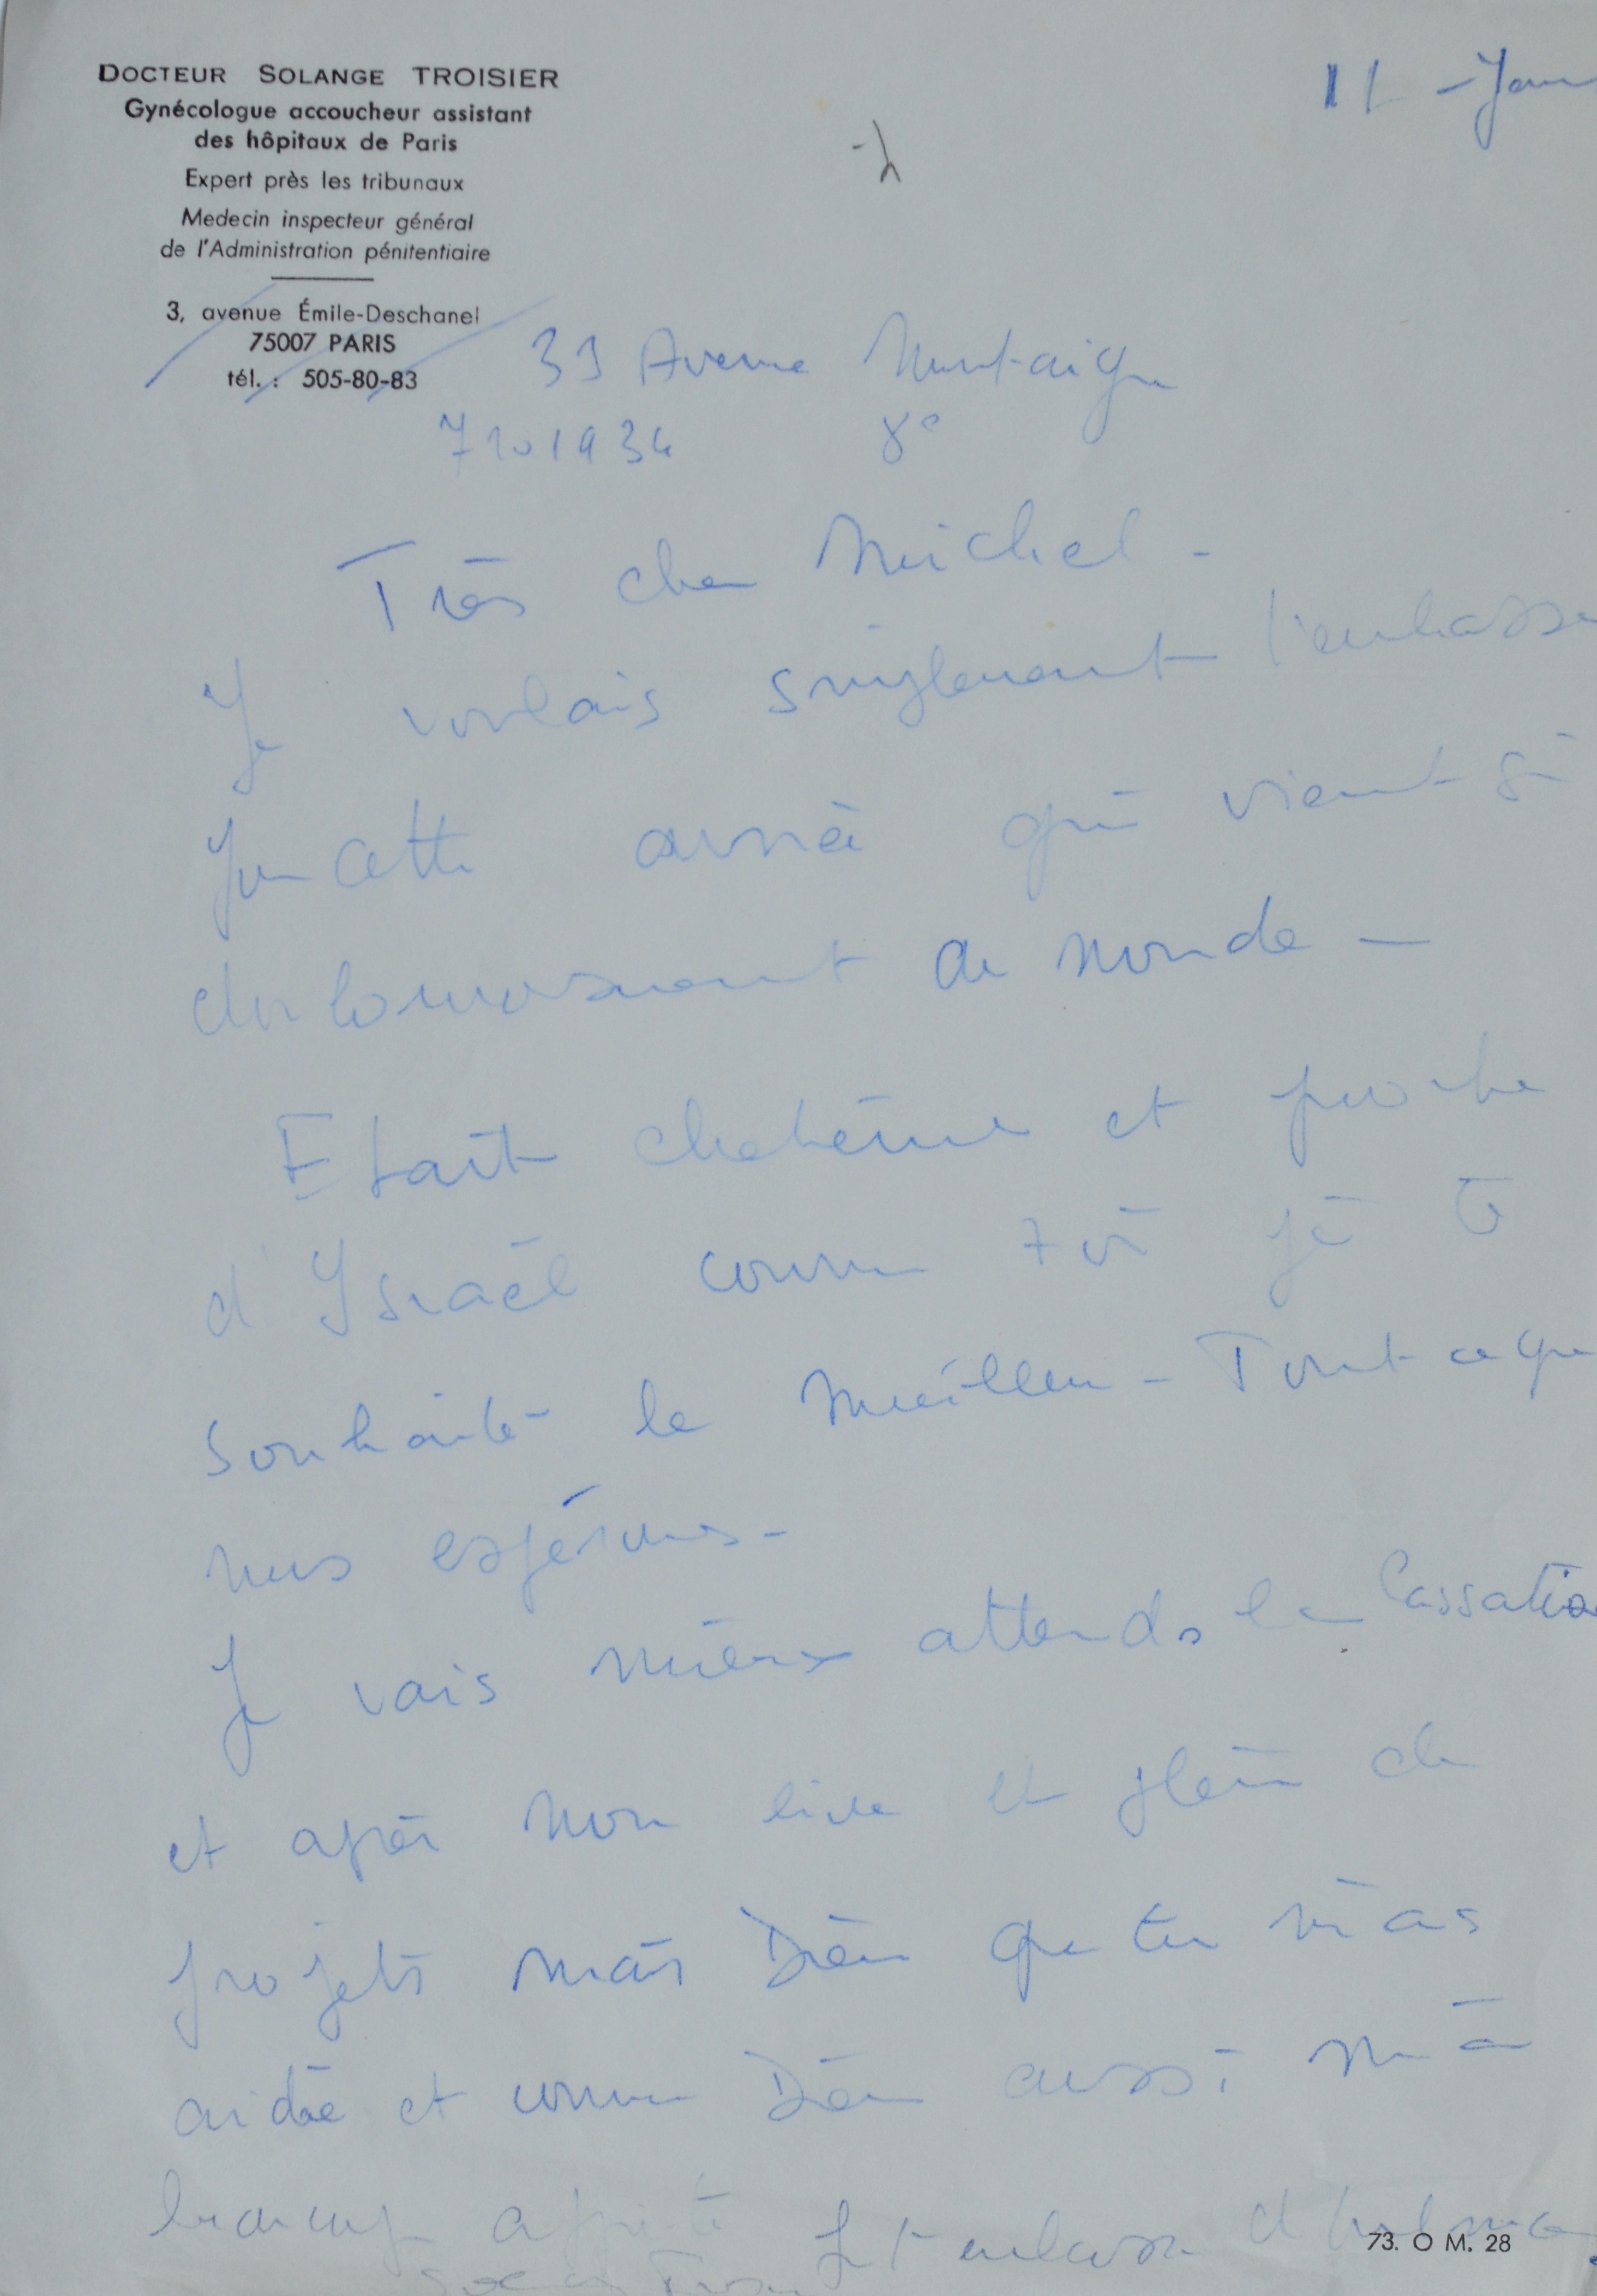 DOCTEUR SOLANGE TROISIER
Gynécologue accoucheur assistant
des hôpitaux de Paris
Expert près les tribunaux
Medecin inspecteur général
de l'Administration pénitentiaire
3, avenue Émile-Deschanel
75007 PARIS
tél. : 505-80-83
11 - Jan
Avenue Montaigne
8e
Très cher Michel -
Je voulais simplement t'embrasser
pour cette année qui vient si
douloureusement au monde -
Etant chrétienne et proche
d'Israël comme toi je te
souhaite le meilleur - Tout ce que
nous espérons -
Je vais mieux attends la Cassation
et après mon livre et plein de
projets mais Dieu que tu m'as
aidée et comme Dieu aussi m'a
beaucoup Je t'embrasse
73. O M. 28